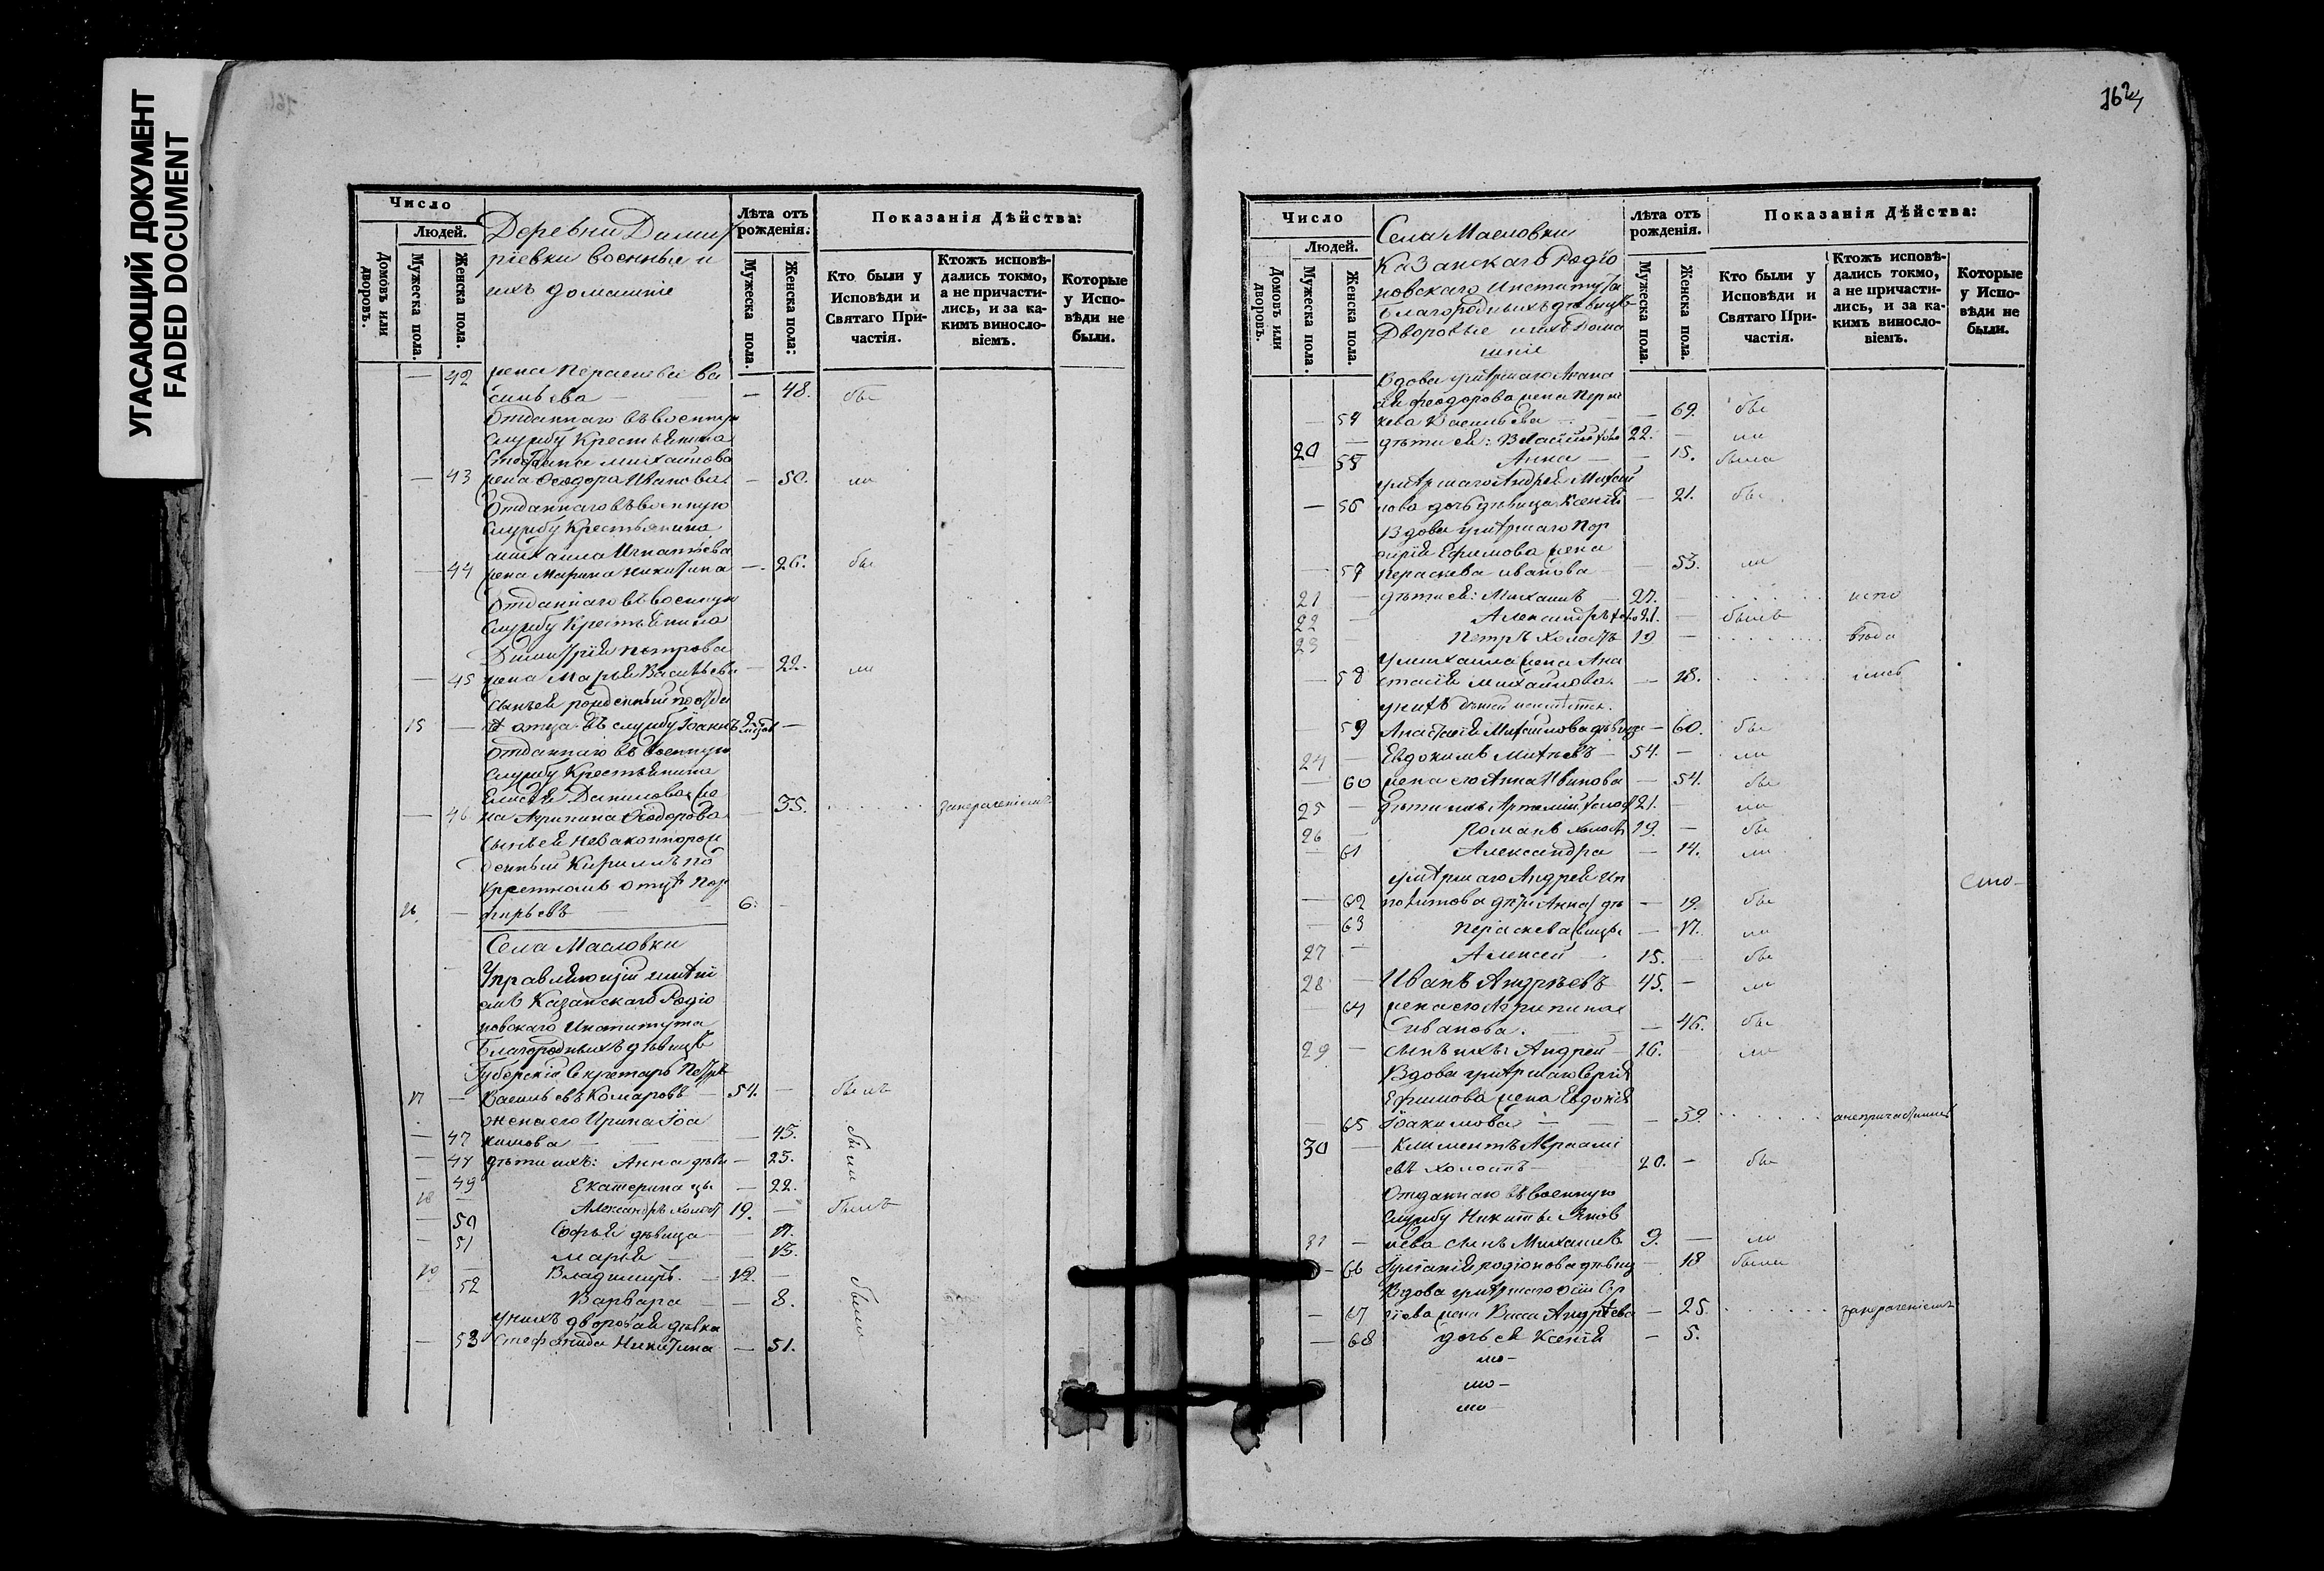 УГАСАЮЩИЙ ДОКУМЕНТ
FADED DOCUMENT
Число
Людей.
Домовъ или дворовъ.
Мужеска пола.
Женска пола.
Деревни Димит
ріевки военные и
ихъ домашніе
Лѣта отъ рожденія.
Мужеска пола.
Женска пола:
Показанія Дѣйства:
Кто были у Исповѣди и Святаго Причастія.
Ктожъ исповѣдались токмо, а не причастились, и за какимъ винословіемъ.
Которые у Исповѣди не были.
— 42 жена Параскева Ва
сильева — 48. бы
Отданнаго въ военную
службу Крестьянина
Стефана Михайлова
— 43 жена Ѳеодора Иванова — 50. ли
Отданнаго въ военную
службу Крестьянина
Михаила Игнатіева
— 44 жена Марина Никитина — 26. бы
Отданнаго въ военную
службу Крестьянина
Димитрія Петрова
— 45 жена Марья Васильева — 22. ли
сынъ ея рожденный по отда
15 — отца въ службу Іоаннъ —
Отданнаго въ военную
службу Крестьянина
Елисея Данилова же
— 46 на Агрипина Ѳеодорова — 35.
сынъ ея незаконнорож
денный Кириллъ по
крестномъ отцѣ Пор
16 — фирьевъ — 6. —
Села Масловки
Управляющій имѣні
емъ Казанскаго Родіо
новскаго Института
Благородныхъ дѣвицъ
Губернскій Секретарь Петръ
17 — Васильевъ Комаровъ — 54. — былъ
жена его Ирина Іоа
— 47 кимова — 45. были
— 48 дѣти ихъ: Анна дѣви — 25.
— 49 Екатерина цы — 22.
18 — Александръ холост 19. — былъ
— 50 Софья дѣвица — 17.
— 51 Марья — 15.
19 — Владиміръ. — 12. —
— 52 Варвара — 8.
у нихъ дворовая дѣвка
— 53 Стефанида Никитина — 51.
Число
Людей.
Домовъ или дворовъ.
Мужеска пола.
Женска пола.
Села Масловки
Казанскаго Родіо
новскаго Института
Благородныхъ дѣвицъ
Дворовые и ихъ Дома
шніе
Лѣта отъ рожденія.
Мужеска пола.
Женска пола.
Показанія Дѣйства:
Кто были у Исповѣди и Святаго Причастія.
Ктожъ исповѣдались токмо, а не причастились, и за какимъ винословіемъ.
Которые у Исповѣди не были.
Вдова умершаго Афана
сія Ѳеодорова жена Парас
— 54 кева Васильева — 69. бы
20 — дѣти ея: 22. — ли
— 55 Анна — 15. была
умершаго Андрея Михай
— 56 лова дочь дѣвица Ксенія — 21. бы
Вдова умершаго Пор
фирія Ефимова жена
— 57 Параскева Иванова — 53. ли
21 — дѣти ея: Михаилъ — 27. — испо
22 — Александръ 21. — былъ
23 — Петръ холостъ 19 — вѣда
у Михаила жена Ана
— 58 стасія Михайлова — 28. лись
— 59 Анастасія Михайлова дѣвица — 60. бы
24 — Евдокимъ 54. — ли
— 60 жена его Анна Иванова — 54. бы
25 — дѣти ихъ Артемій холост 21. — ли
26 — Романъ холостъ 19. — бы
— 61 Александра — 14. ли
умершаго Андрея Ип
— 62 политова дѣти Анна дѣ — 19. бы
— 63 Параскева вицы — 17. ли
27 — Алексей — 15. — бы
28 — Иванъ Андреевъ 45. — ли
— 64 жена его Агрипина
Иванова. — 46. бы
29 — сынъ ихъ Андрей — 16. — ли
Вдова умершаго Сергія
Ефимова жена Евдокія
— 65 Іоакимова — 39.
30 — Климентъ Авраамі
евъ холостъ — 20. — бы
Отданнаго въ военную
службу Никиты Яков
31 — лева сынъ Михаилъ 9. — ли
— 66 Родіонова дѣвиц — 18 была
Вдова умершаго Сер
— 67 гіева жена Васса Андреева — 25.
— 68 дочь ея Ксенія — 5.